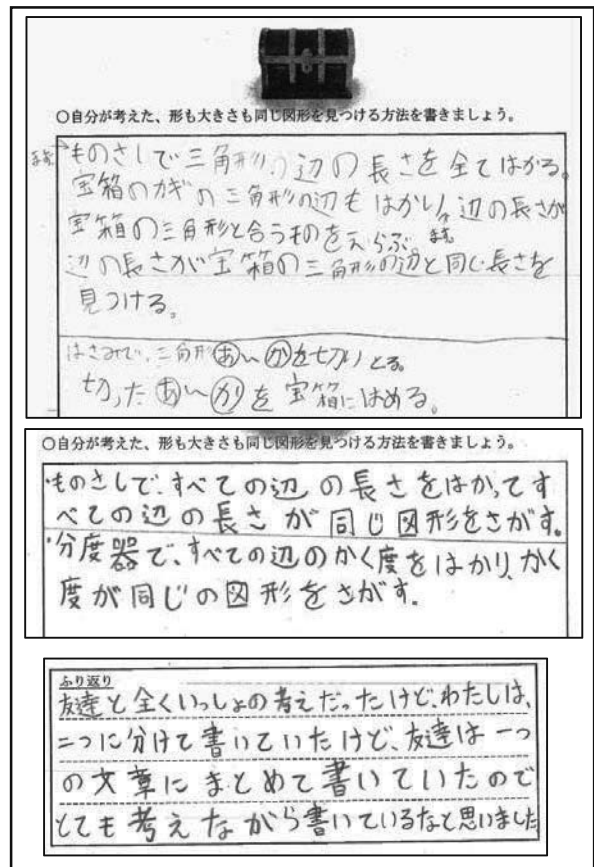 ○自分が考えた、形も大きさも同じ図形を見つける方法を書きましょう。
ものさしで三角形の辺の長さを全てはかる。
宝箱のカギの三角形の辺もはかり、辺の長さが
宝箱の三角形と合うものをえらぶ。
辺の長さが宝箱の三角形の辺と同じ長さを
見つける。
はさみで、三角形あ〜かを切りとる。
切ったあ〜かを宝箱にはめる。
○自分が考えた、形も大きさも同じ図形を見つける方法を書きましょう。
・ものさしで、すべての辺の長さをはかってす
べての辺の長さが同じ図形をさがす。
・分度器で、すべての辺のかく度をはかり、かく
度が同じの図形をさがす。
ふり返り
友達と全くいっしょの考えだったけど、わたしは、
二つに分けて書いていたけど、友達は一つ
の文章にまとめて書いていたので
とても考えながら書いているなと思いました